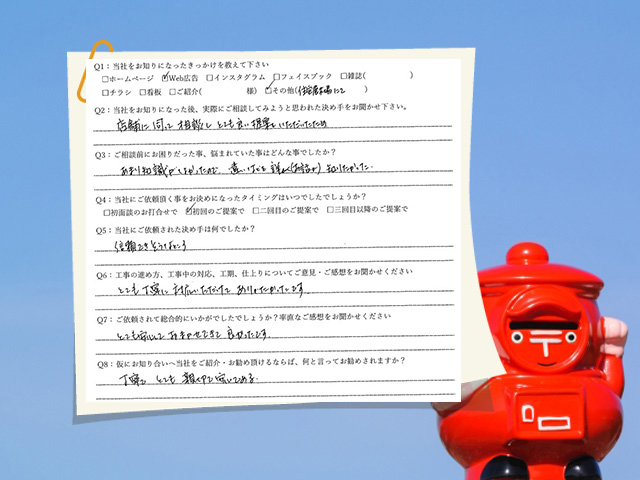 Q1：当社をお知りになったきっかけを教えて下さい
□ホームページ ☑Web広告 □インスタグラム □フェイスブック □雑誌( )
□チラシ □看板 □ご紹介( 様) ☑その他(住宅展示場にて )
Q2：当社をお知りになった後、実際にご相談してみようと思われた決め手をお聞かせ下さい。
店舗に伺って相談し とても良い提案をいただいたため
Q3：ご相談前にお困りだった事、悩まれていた事はどんな事でしたか？
あまり知識がなかったので、違いなどを詳しく 知りたかった.
Q4：当社にご依頼頂く事をお決めになったタイミングはいつでしたでしょうか？
□初面談のお打合せで ☑初回のご提案で □二回目のご提案で □三回目以降のご提案で
Q5：当社にご依頼された決め手は何でしたか？
信頼できそうなところ
Q6：工事の進め方、工事中の対応、工期、仕上りについてご意見・ご感想をお聞かせください
とても丁寧に対応いただけて ありがたかったです
Q7：ご依頼されて総合的にいかがでしたでしょうか？率直なご感想をお聞かせください
とても安心して おまかせできて 良かったです.
Q8：仮にお知り合いへ当社をご紹介・お勧め頂けるならば、何と言ってお勧めされますか？
丁寧で とても 親切で安心できる.